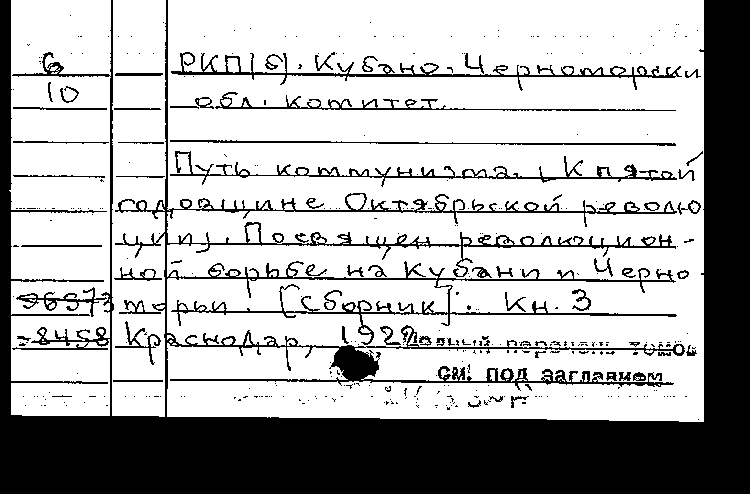 6 РКП(б). Кубано-Черноморский
10 обл. комитет.
Путь коммунизма. [К пятой
годовщине Октябрьской револю
ции]. Посвящен революцион-
ной борьбе на Кубани и Черно-
96373 морьи. [Сборник]. Кн. 3
-8458 Краснодар, 1922 Полный перечень томов
см. под заглавием